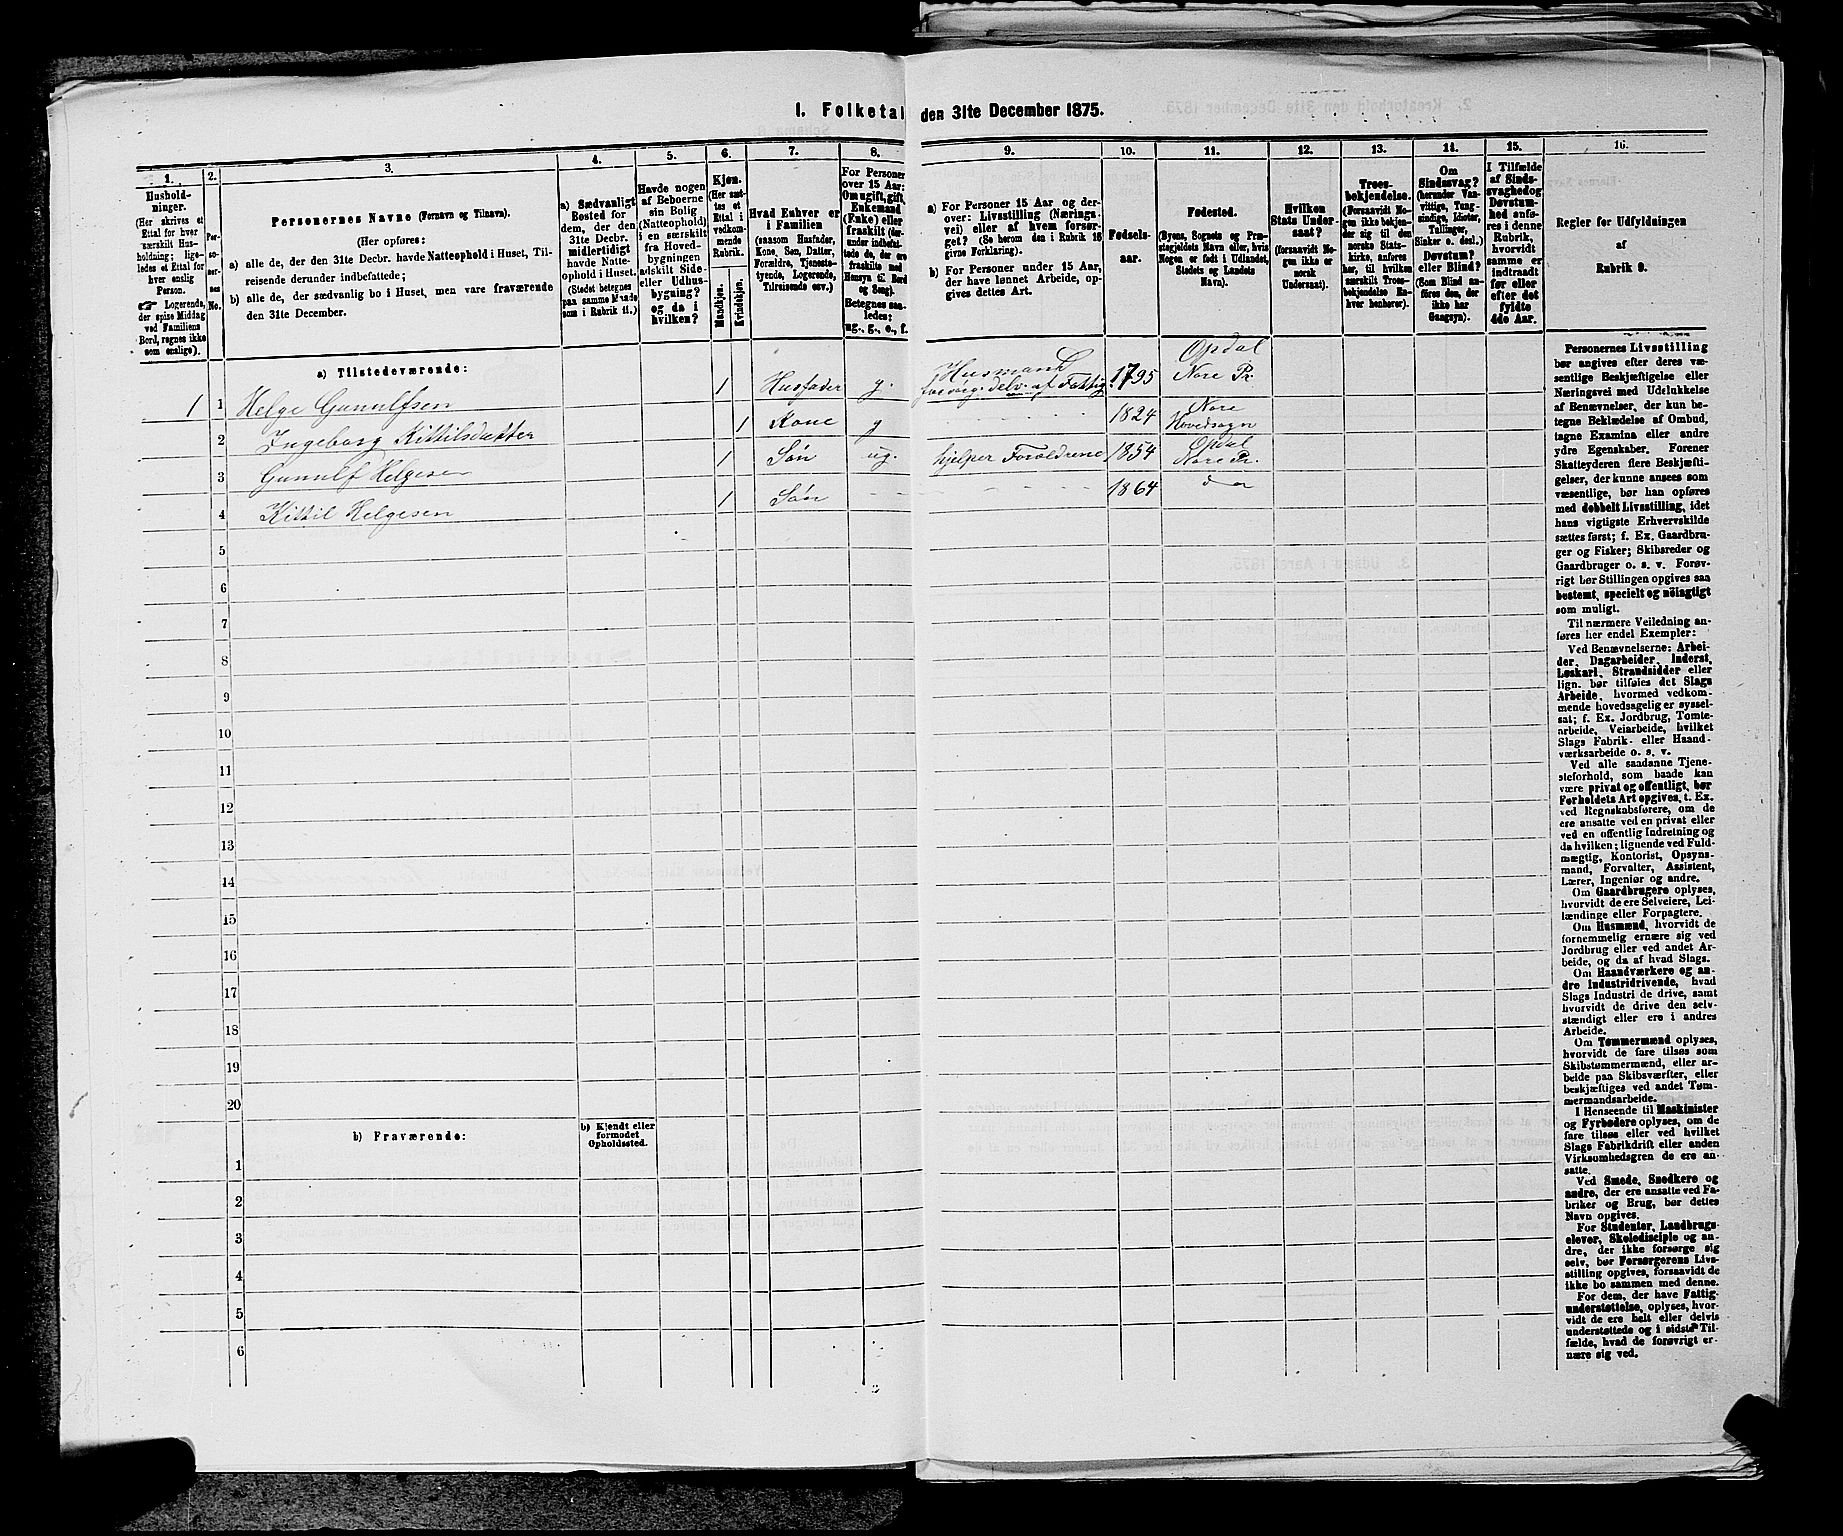 I. Folketal den 31te December 1875.
1.
Hushold-
ninger.
(Her skrives et
Ettal for hver
særskilt Hus-
holdning; lige-
ledes et Ettal for
hver enslig
Person.
☞ Logerende,
der spise Middag
ved Familiens
Bord, regnes ikke
som enslige).
2.
Per-
so-
ner-
nes
No.
3.
Personernes Navne (Fornavn og Tilnavn).
(Her opføres:
a) alle de, der den 31te Decbr. havde Natteophold i Huset, Til-
reisende derunder indbefattede;
b) alle de, der sædvanlig bo i Huset, men vare fraværende
den 31te December.
4.
a) Sædvanligt
Bosted for
dem, der den
31te Decbr.
midlertidigt
havde Natte-
ophold i Huset.
(Stedet betegnes
paa samme Maade
som i Rubrik 11.)
5.
Havde nogen
af Beboerne
sin Bolig
(Natteophold)
i en særskilt
fra Hoved-
bygningen
adskilt Side-
eller Udhus-
bygning?
og da i
hvilken?
6.
Kjøn.
(Her sæt-
tes et
Ettal i
vedkom-
mende
Rubrik.
Mandkjøn.
Kvindekjøn.
7.
Hvad Enhver er
i Familien
(saasom Husfader,
Kone, Søn, Datter,
Forældre, Tjeneste-
tyende, Logerende,
Tilreisende osv.)
8.
For Personer
over 15 Aar:
Om ugift, gift,
Enkemand
(Enke) eller
fraskilt (der-
under indbefat-
tede de, der ere
fraskilte med
Hensyn til Bord
og Seng).
Betegnes saa-
ledes:
ug., g., e., f.
9.
a) For Personer 15 Aar og der-
over: Livsstilling (Nærings-
vei) eller af hvem forsør-
get? (Se herom den i Rubrik 16
givne Forklaring).
b) For Personer under 15 Aar,
der have lønnet Arbeide, op-
gives dettes Art.
10.
Fødsels-
aar.
11.
Fødested.
(Byens, Sognets og Præ-
stegjeldets Navn eller, hvis
Nogen er født i Udlandet,
Stedets og Landets
Navn).
12.
Hvilken
Stats Under-
saat?
(forsaavidt No-
gen ikke er
norsk
Undersaat).
13.
Troes-
bekjendelse.
(Forsaavidt No-
gen ikke bekjen-
der sig til den
norske Stats-
kirke, anføres
her, til hvilken
særskilt Troes-
bekjendelse En-
hver henhører).
14.
Om
Sindssvag?
(herunder Van-
vittige, Tung-
sindige, Idioter,
Tullinger,
Sinker o. desl.)
Døvstum?
eller Blind?
(Som Blind an-
føres den, der
ikke har
Gangsyn).
15.
I Tilfælde
af Sinds-
svaghed og
Døvstum-
hed anfø-
res i denne
Rubrik,
hvorvidt
samme er
indtraadt
før eller
efter det
fyldte
4de Aar.
16.
Regler for Udfyldningen
af
Rubrik 9.
a) Tilstedeværende:
1 1 Helge Gunulfsen 1 Husfader g. Husmand 1795 Opdal Nore Pr
2 Ingeborg Kittilsdatter 1 Kone g 1824 Nore Hovedsogn
3 Gunulf Helgesen 1 Søn ug. hjelper Forældrene 1854 Opdal Nore Pr.
4 Kittil Helgesen 1 Søn 1864 do
5
6
7
8
9
10
11
12
13
14
15
16
17
18
19
20
b) Fraværende:
b) Kjendt eller
formodet
Opholdssted.
1
2
3
4
5
6
Personernes Livsstilling
bør angives efter deres væ-
sentlige Beskjæftigelse eller
Næringsvei med Udelukkelse
af Benævnelser, der kun be-
tegne Beklædelse af Ombud,
tagne Examina eller andre
ydre Egenskaber. Forener
Skatteyderen flere Beskjæfti-
gelser, der kunne ansees som
væsentlige, bør han opføres
med dobbelt Livsstilling, idet
hans vigtigste Erhvervskilde
sættes først; f. Ex. Gaardbru-
ger og Fisker; Skibsreder og
Gaardbruger o. s. v. Forøv-
rigt bør Stillingen opgives saa
bestemt, specielt og nøiagtigt
som muligt.
Til nærmere Veiledning an-
føres her endel Exempler:
Ved Benævnelserne: Arbei-
der, Dagarbeider, Inderst,
Løskarl, Strandsidder eller
lign. bør tilføies det Slags
Arbeide, hvormed vedkom-
mende hovedsagelig er syssel-
sat; f. Ex. Jordbrug, Tomte-
arbeide, Veiarbeide, hvilket
Slags Fabrik- eller Haand-
værksarbeide o. s. v.
Ved alle saadanne Tjene-
steforhold, som baade kan
være privat og offentligt, bør
Forholdets Art opgives, t. Ex.
ved Regnskabsførere, om de
ere ansatte ved en privat eller
ved en offentlig Indretning og
da hvilken; lignende ved Fuld-
mægtig, Kontorist, Opsyns-
mand, Forvalter, Assistent,
Lærer, Ingeniør og andre.
Om Gaardbrugere oplyses,
hvorvidt de ere Selveiere, Lei-
lændinge eller Forpagtere.
Om Husmænd, hvorvidt de
fornemmelig ernære sig ved
Jordbrug eller ved andet Ar-
beide, og da af hvad Slags.
Om Haandværkere og an-
dre Industridrivende, hvad
Slags Industri de drive, samt
hvorvidt de drive den selv-
stændigt eller ere i andres
Arbeide.
Om Tømmermænd oplyses,
hvorvidt de fare tilsøs som
Skibstømmermænd, eller ar-
beide paa Skibsværfter, eller
beskjæftiges ved andet Tøm-
mermandsarbeide.
I Henseende til Maskinister
og Fyrbødere oplyses, om de
fare tilsøs eller ved hvilket
Slags Fabrikdrift eller anden
Virksomhedsgren de ere an-
satte.
Ved Smede, Snedkere og
andre, der ere ansatte ved Fa-
briker og Brug, bør dettes
Navn opgives.
For Studenter, Landbrugs-
elever, Skoledisciple og an-
dre, der ikke forsørge sig
selv, bør Forsørgerens Livs-
stilling opgives, forsaavidt de
ikke bo sammen med denne.
For dem, der have Fattig-
understøttelse, oplyses, hvor-
vidt de ere helt eller delvis
understøttede og i sidste Til-
fælde, hvad de forøvrigt er-
nære sig ved.